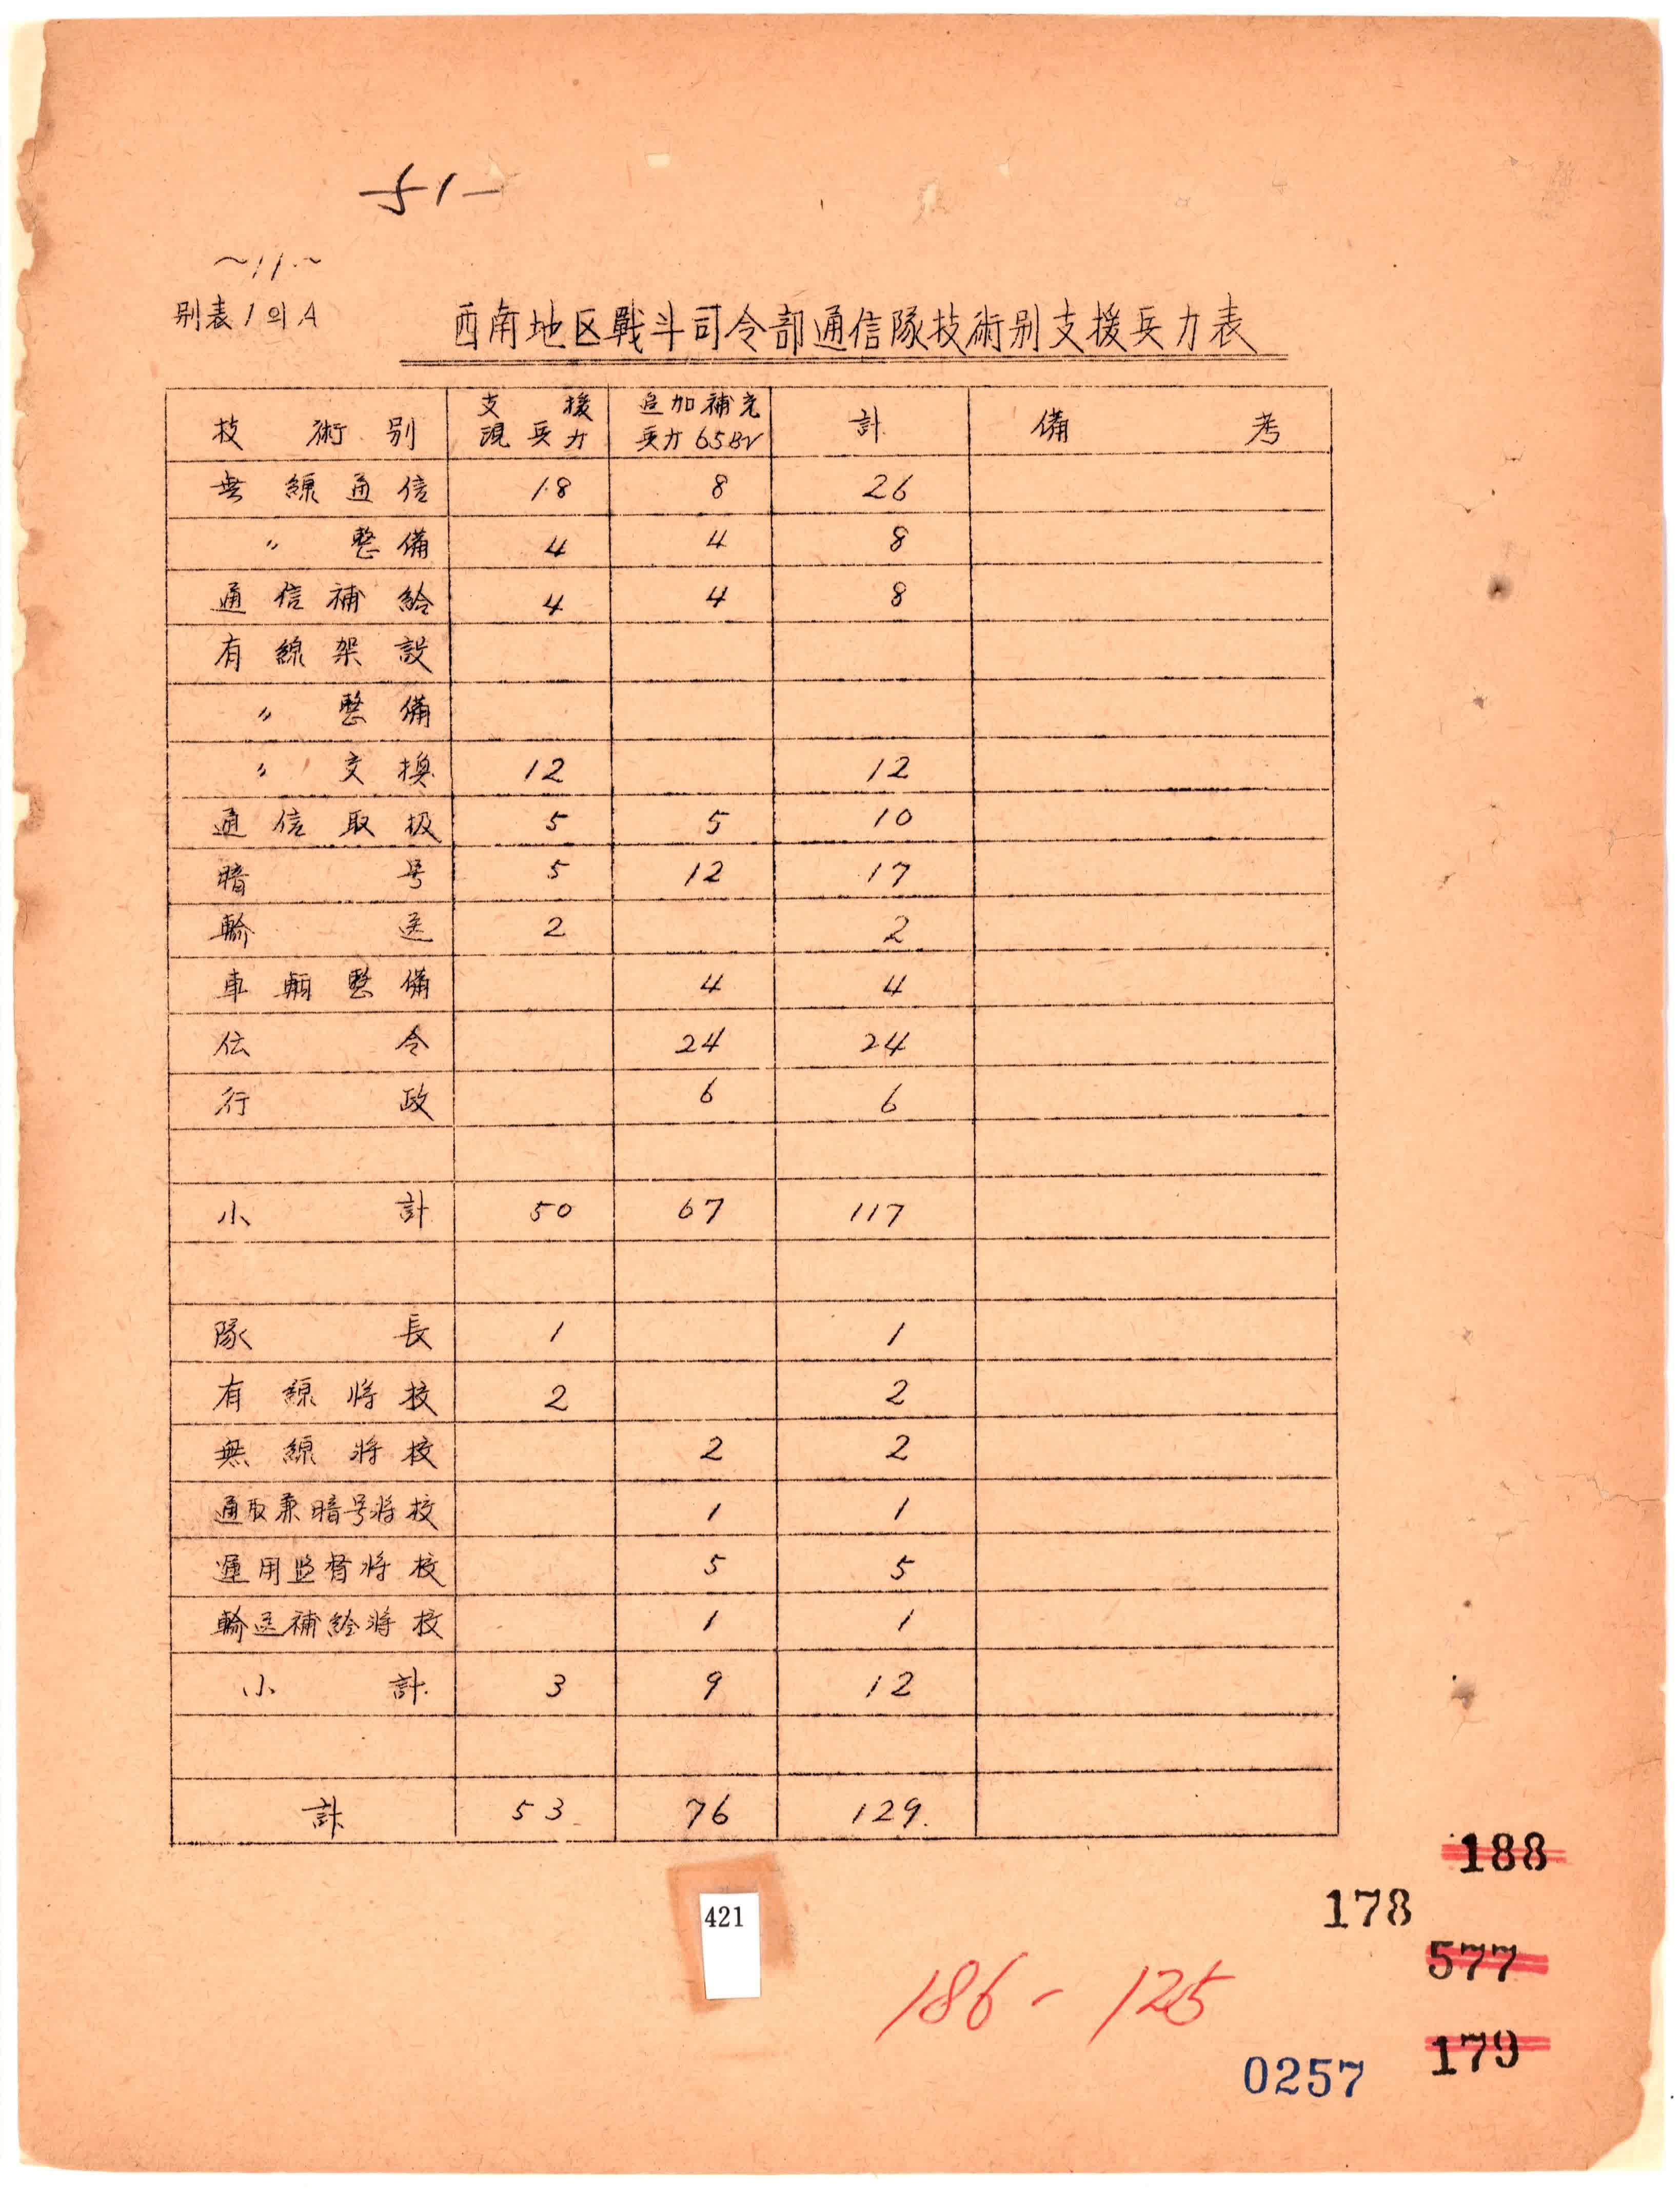 -51-
~11.~
別表1의A
西南地区戰斗司令部通信隊技術別支援兵力表
技術別 支援現兵力 追加補充兵力65BN 計 備考
無線通信 18 8 26
〃 整備 4 4 8
通信補給 4 4 8
有線架設
〃 整備
〃 交換 12 12
通信取扱 5 5 10
暗号 5 12 17
輸送 2 2
車輌整備 4 4
伝令 24 24
行政 6 6
小計 50 67 117
隊長 1 1
有線将校 2 2
無線将校 2 2
通取兼暗号将校 1 1
運用監督将校 5 5
輸送補給将校 1 1
小計 3 9 12
計 53 76 129
188
421
178
577
186-125
179
0257